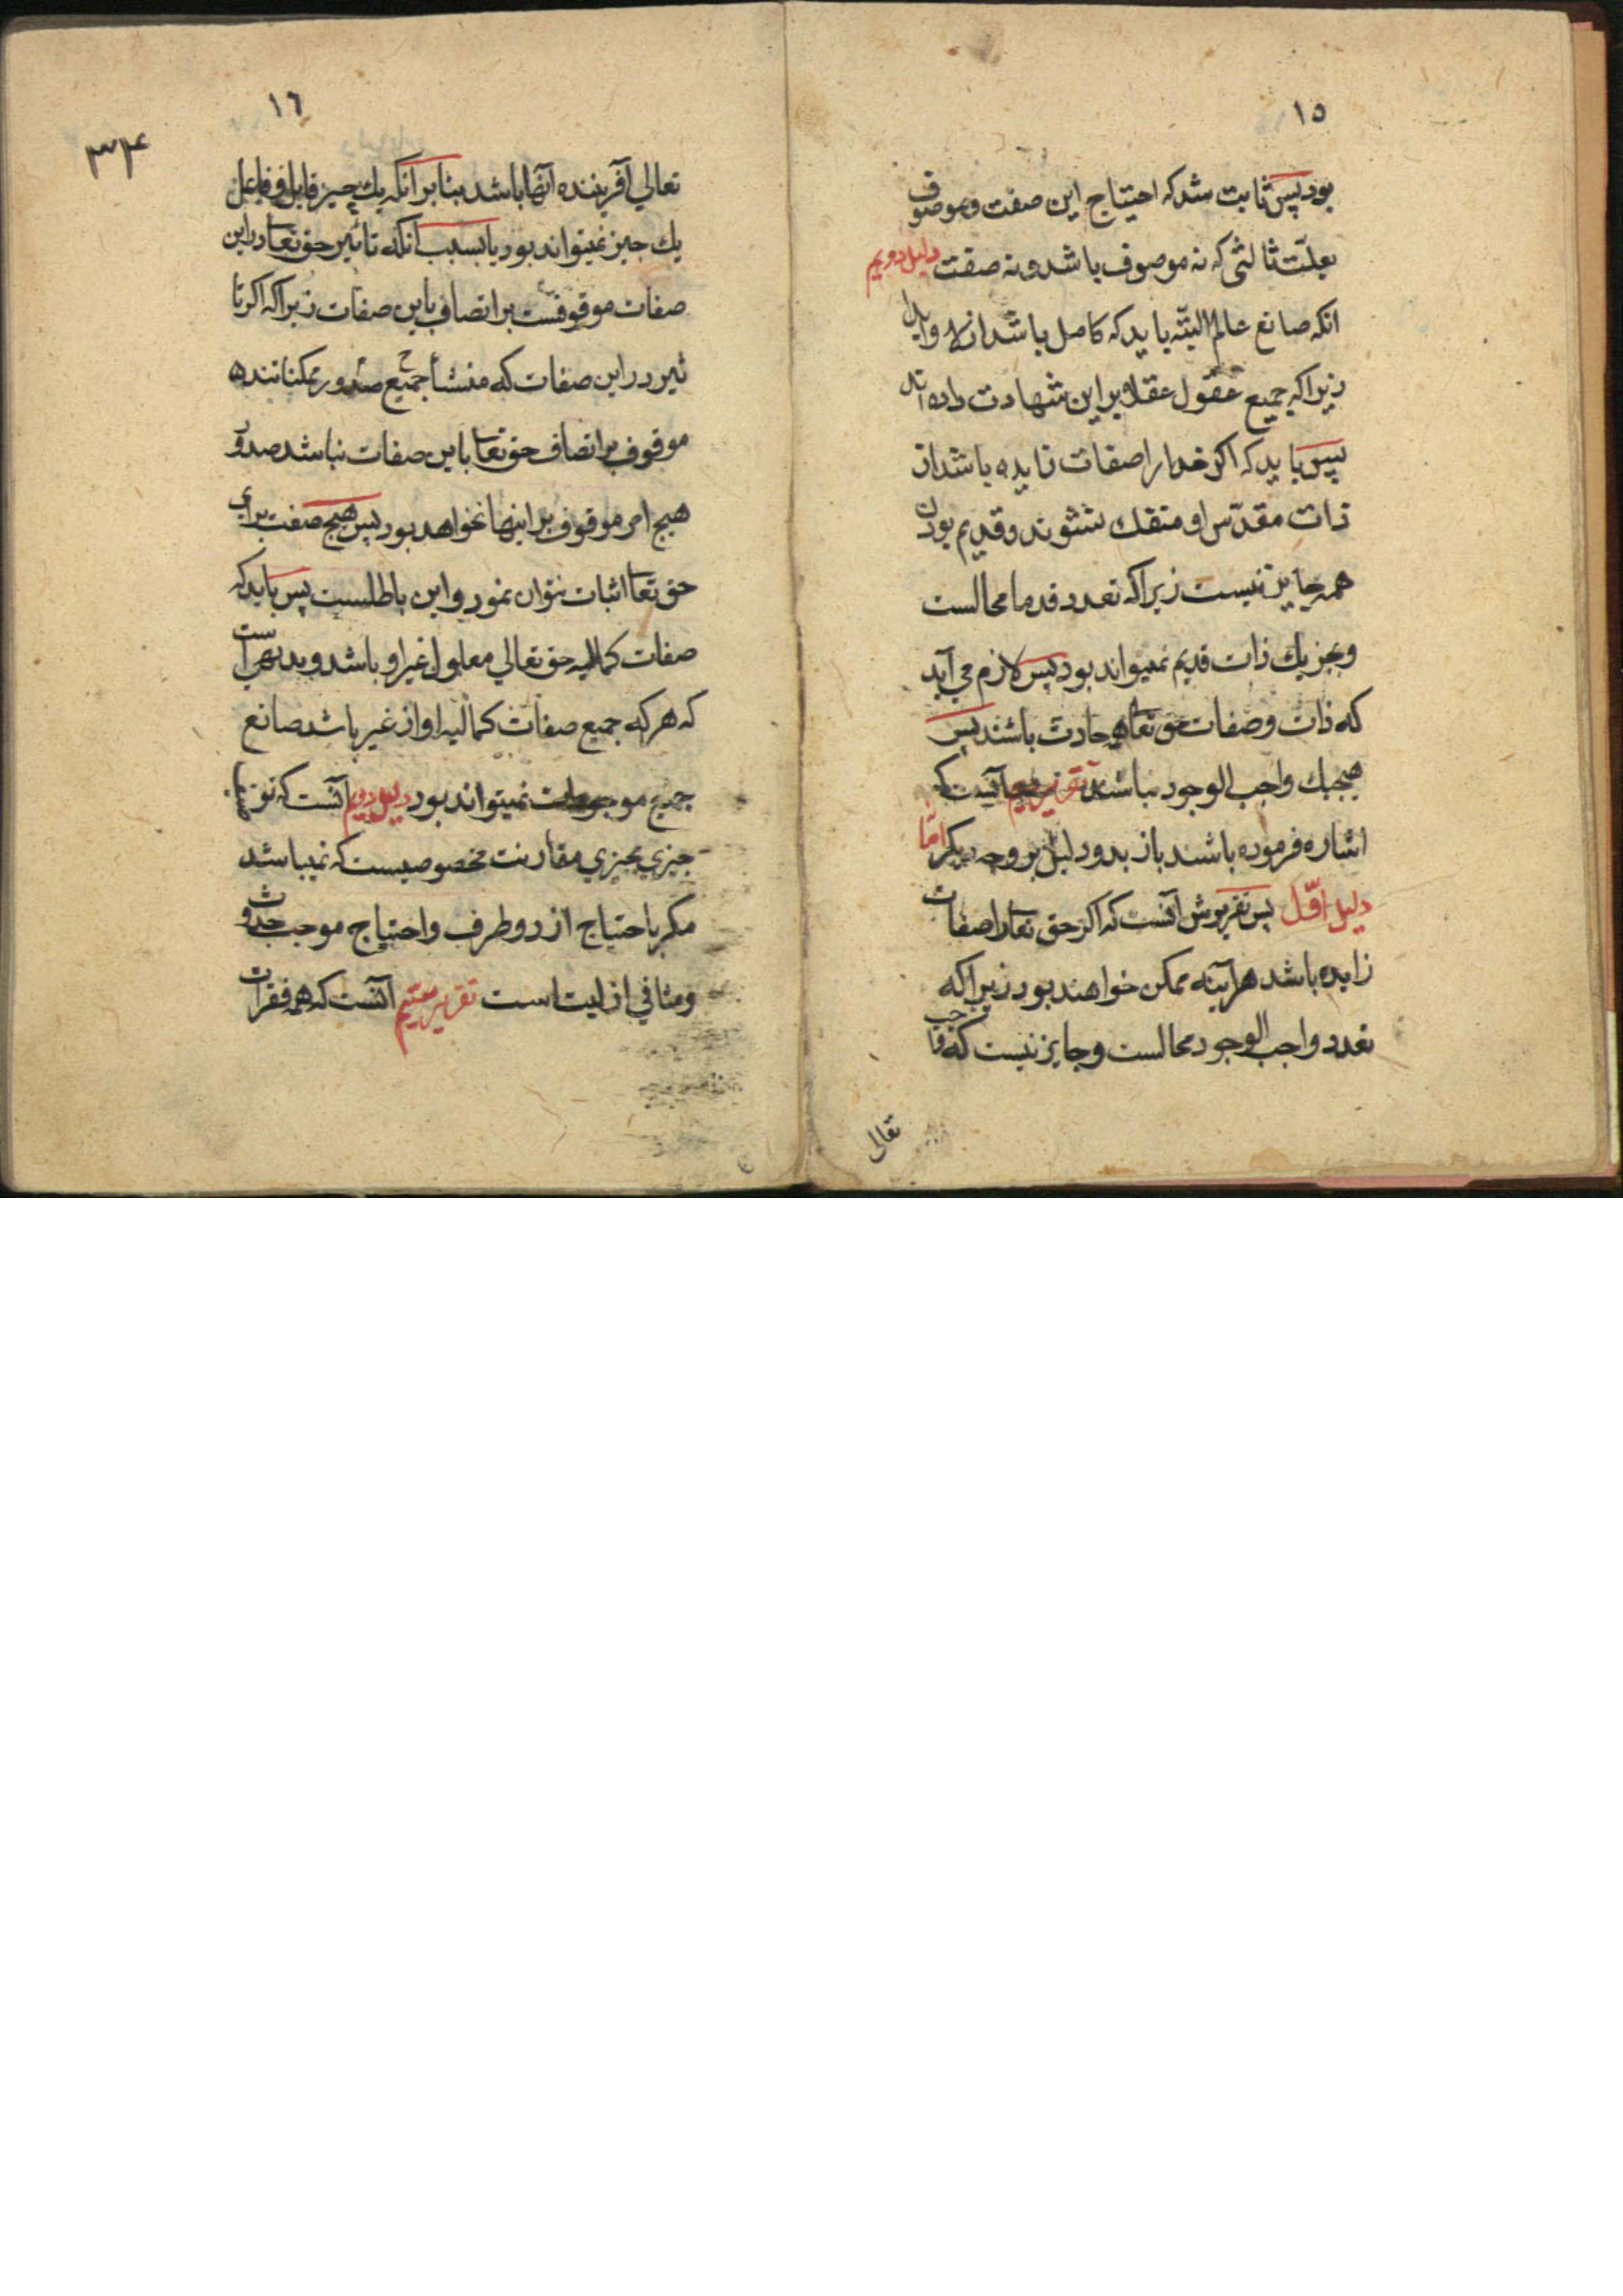 ١٥
بود پس ثابت شد که احتیاج این صفت و موصوف
بعلّت ثالثی که نه موصوف باشد و نه صفت دلیل دویم
انکه صانع عالم البتّه باید که کامل باشد ازلا و ابدا
زیرا که جمیع عقول عقلا بر این شهادت داده اند
پس باید که اکر خدا را صفات زایده باشد از
ذات مقدّس او منفک نشوند و قدیم بودن
همه جایز نیست زیرا که تعدد قدما محالست
و بجز یك ذات قدیم نمیتواند بود پس لازم می آید
که ذات و صفات حق تعا همه حادث باشند پس
هیچیك واجب الوجود نباشند تقریر دویم آنست که
اشاره فرموده باشند باز بدو دلیل بر وجه دیکر امّا
دلیل اوّل پس تقریرش آنست که اکر حق تعا را صفات
زایده باشد هرآینه ممکن خواهند بود زیرا که
تعدد واجب الوجود محالست و جایز نیست که واجب
تعالی
١٦
٣٤
تعالی آفریننده آنها باشد بنا بر آنکه یك چیز قابل و فاعل
یك چیز نمیتواند بود یا بسبب آنکه تاثیر حق تعا در این
صفات موقوفست بر اتصاف باین صفات زیرا که اکر تا
ثیر در این صفات که منشأ جمیع صدور ممکنا تنده
موقوف بر اتصاف حق تعا باین صفات نباشد صدور
هیچ امر موقوف بر اینها نخواهد بود پس هیچ صفت برای
حق تعا اثبات نتوان نمود و این باطلست پس باید که
صفات کمالیه حق تعالی معلول غیر او باشد و بدیهی است
که هر که جمیع صفات کمالیه او از غیر باشد صانع
جمیع موجودات نمیتواند بود دلیل دویم آنست که
چیزی بچیزی مقارنت مخصوصیست که نمیباشد
مکر باحتیاج از دو طرف و احتیاج موجب حدوث
و منافی ازلیت است تقریر سیّم آنست که همه فقرات